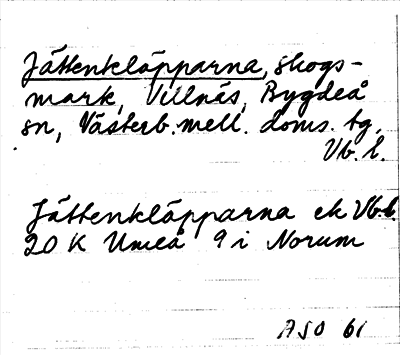 Jättenkläpparna, skogs-
mark, Villnäs, Bygdeå
sn, Västerb. mell. doms. tg,
Vb. l.
Jättenkläpparna ek Vb.l.
20 K Umeå 9 i Norum
ASO 61